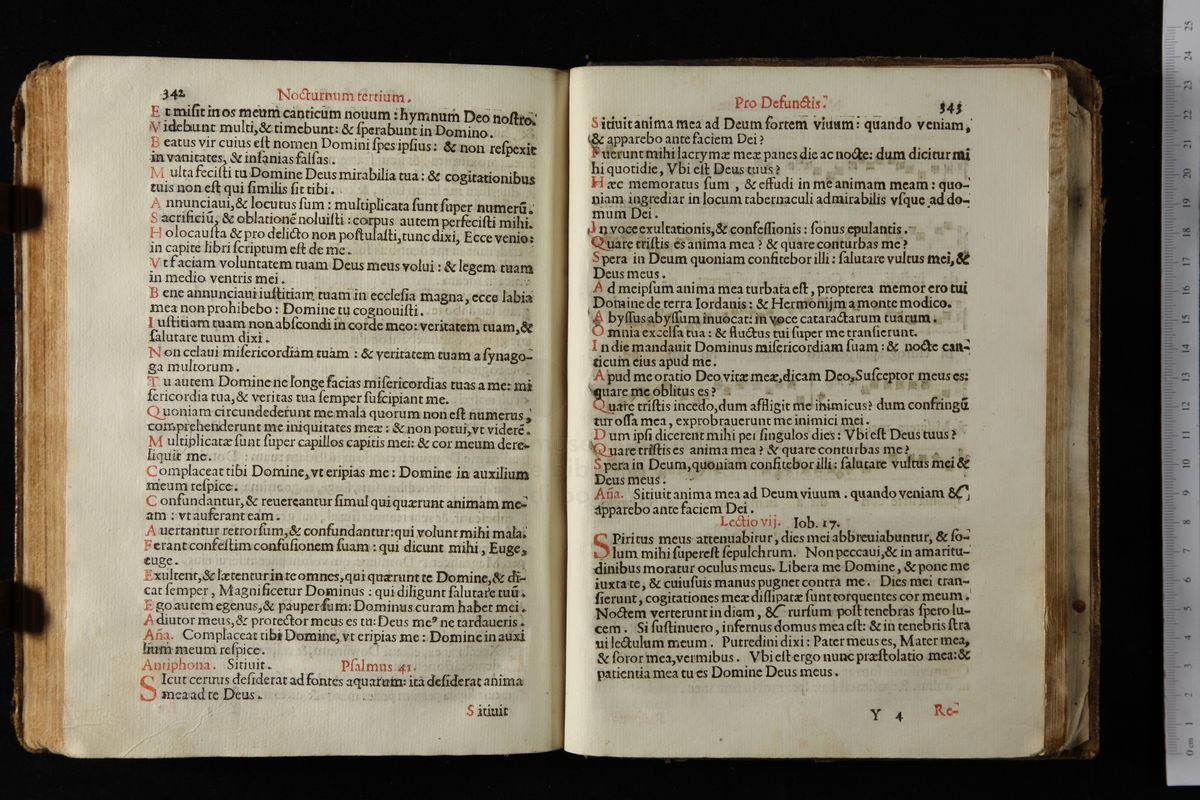 342
Nocturnum tertium.
Et misit in os meum canticum nouum : hymnum Deo nostro.
Videbunt multi, & timebunt: & sperabunt in Domino.
Beatus vir cuius est nomen Domini spes ipsius : & non respexit
in vanitates, & insanias falsas.
Multa fecisti tu Domine Deus mirabilia tua : & cogitationibus
tuis non est qui similis sit tibi.
Annunciaui, & locutus sum : multiplicata sunt super numerū.
Sacrificiū, & oblationē noluisti : corpus autem perfecisti mihi.
Holocausta & pro delicto non postulasti, tunc dixi, Ecce venio:
in capite libri scriptum est de me.
Vt faciam voluntatem tuam Deus meus volui : & legem tuam
in medio ventris mei.
Bene annunciaui iustitiam tuam in ecclesia magna, ecce labia
mea non prohibebo : Domine tu cognouisti.
Iustitiam tuam non abscondi in corde meo: veritatem tuam, &
salutare tuum dixi.
Non celaui misericordiam tuam : & veritatem tuam a synago-
ga multorum.
Tu autem Domine ne longe facias misericordias tuas a me: mi
sericordia tua, & veritas tua semper susceipiant me.
Quoniam circundederunt me mala quorum non est numerus,
comprehenderunt me iniquitates meæ : & non potui, vt viderē.
Multiplicatæ sunt super capillos capitis mei: & cor meum dere-
liquit me.
Complaceat tibi Domine, vt eripias me : Domine in auxilium
meum respice.
Confundantur, & reuereantur simul qui quærunt animam me-
am : vt auferant eam.
Auertantur retrorsum, & confundantur: qui volunt mihi mala.
Ferant confestim confusionem suam : qui dicunt mihi, Euge,
euge.
Exultent, & lætentur in te omnes, qui quærunt te Domine, & di-
cat semper, Magnificetur Dominus : qui diligunt salutare tuū.
Ego autem egenus, & pauper sum: Dominus curam habet mei.
Adiutor meus, & protector meus es tu: Deus me⁹ ne tardaueris.
Aña. Complaceat tibi Domine, vt eripias me : Domine in auxi
lium meum respice.
Antiphona. Sitiuit. Psalmus 41.
SIcut ceruus desiderat ad fontes aquarum: ita desiderat anima
mea ad te Deus.
Sitiuit
Pro Defunctis.
343
Sitiuit anima mea ad Deum fortem viuum: quando veniam,
& apparebo ante faciem Dei?
Fuerunt mihi lacrymæ meæ panes die ac nocte: dum dicitur mi
hi quotidie, Vbi est Deus tuus?
Hæc memoratus sum, & effudi in me animam meam : quo-
niam ingrediar in locum tabernaculi admirabilis vsque ad do-
mum Dei.
In voce exultationis, & confessionis : sonus epulantis.
Quare tristis es anima mea? & quare conturbas me?
Spera in Deum quoniam confitebor illi : salutare vultus mei, &
Deus meus.
Ad meipsum anima mea turbata est, propterea memor ero tui
Domine de terra Iordanis: & Hermonijm a monte modico.
Abyssus abyssum inuocat: in voce cataractarum tuarum.
Omnia excelsa tua : & fluctus tui super me transierunt.
In die mandauit Dominus misericordiam suam : & nocte can-
ticum eius apud me.
Apud me oratio Deo vitæ meæ, dicam Deo, Susceptor meus es:
quare me oblitus es?
Quare tristis incedo, dum affligit me inimicus? dum confringū
tur ossa mea, exprobrauerunt me inimici mei.
Dum ipsi dicerent mihi per singulos dies : Vbi est Deus tuus?
Quare tristis es anima mea? & quare conturbas me?
Spera in Deum, quoniam confitebor illi : salutare vultus mei &
Deus meus.
Aña. Sitiuit anima mea ad Deum viuum. quando veniam &
apparebo ante faciem Dei.
Lectio vij. Iob. 17.
SPiritus meus attenuabitur, dies mei abbreuiabuntur, & so-
lum mihi superest sepulchrum. Non peccaui, & in amaritu-
dinibus moratur oculus meus. Libera me Domine, & pone me
iuxta te, & cuiusuis manus pugnet contra me. Dies mei tran-
sierunt, cogitationes meæ dissipatæ sunt torquentes cor meum.
Noctem verterunt in diem, & rursum post tenebras spero lu-
cem. Si sustinuero, infernus domus mea est: & in tenebris stra
ui lectulum meum. Putredini dixi : Pater meus es, Mater mea,
& soror mea, vermibus. Vbi est ergo nunc præstolatio mea: &
patientia mea tu es Domine Deus meus.
Y 4
Re-
0 cm 1 2 3 4 5 6 7 8 9 10 11 12 13 14 15 16 17 18 19 20 21 22 23 24 25